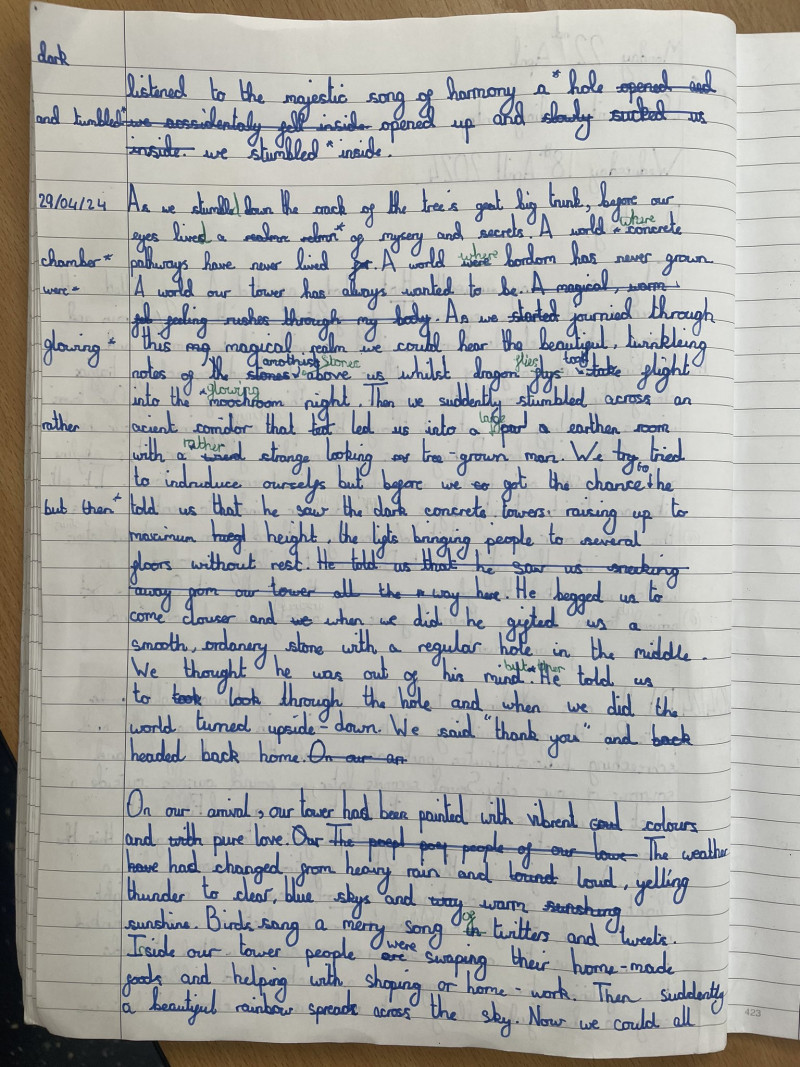 dark
listened to the majestic song of harmony a* hole opened and
and tumbled* we acssidentaly fell inside opened up and slowly sucked us
inside. we stumbled * inside.
29/04/24 As we stumbled down the crack of the tree's great big trunk, before our
eyes lived a of mysery and secrets. A world where concrete
chamber* pathways have never lived for. A world were where bordom has never grown
were - A world our tower has always wanted to be. A magical, warm
feeling rushes through my body. As we started journied through
this mg magical realm we could hear the beautiful, twinkleing
glowing * anothist Stones flies took
notes of the stones above us whilst dragon flys take flight
glowing
into the * moochroom night. Then we suddently stumbled across an
rather large
acient corridor that led us into a a earthen room
rather
with a strange looking tree-grown man. We try tried
to
to indruduce ourselfs but before we got the chance the
but then* told us that he saw the dark concrete towers raising up to
maximum height, the ligts bringing people to several
floors without rest. He told us that he saw us sneaking
away from our tower all the way here. He begged us to
come clouser and we when we did he gifted us a
smooth, ordanery stone with a regular hole in the middle.
but then
We thought he was out of his mind. He told us
to took look through the hole and when we did the
world turned upside-down. We said "thank you" and back
headed back home. On our arr
On our arrival, our tower had been painted with vibrent colours
and with pure love. Our The poepl poy people of our towe The weather
have had changed from heavy rain and lound loud, yelling
thunder to clear, blue skys and way warm sunshing
of
sunshine. Birds sang a merry song twitters and tweets.
were
Inside our tower people are swaping their home-made
goods and helping with shoping or home-work. Then suddently
a beautiful rainbow spreads across the sky. Now we could all
423